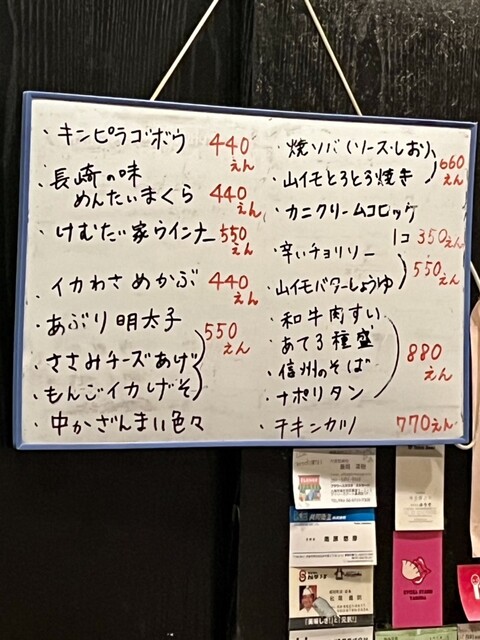 ・キンピラゴボウ 440えん
・長崎の味
めんたいまくら 440えん
・けむたい家ウインナー 550えん
・イカわさめかぶ 440えん
・あぶり明太子
・ささみチーズあげ
・もんごイカしげそ
550えん
・中かざんまい色々
・焼ソバ(ソース・しお)
・山イモとろとろ焼き
660えん
・カニクリームコロッケ
1コ 350えん
・辛いチョリソー
・山イモバターしょうゆ
550えん
・和牛肉すい
・あて3種盛
・信州のそば
・ナポリタン
880えん
・チキンカツ 770えん